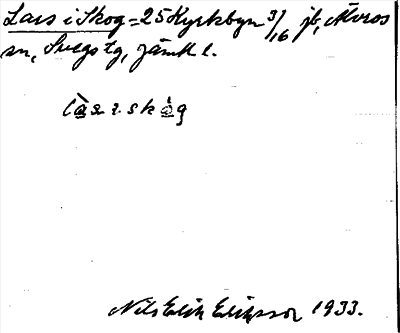 Lars i Skog = 25 Kyrkbyn 3/16 jb, Älvros
sn, Svegs tg, Jämtl l.
làs i skòg
Nils Erik Eliasson 1933.